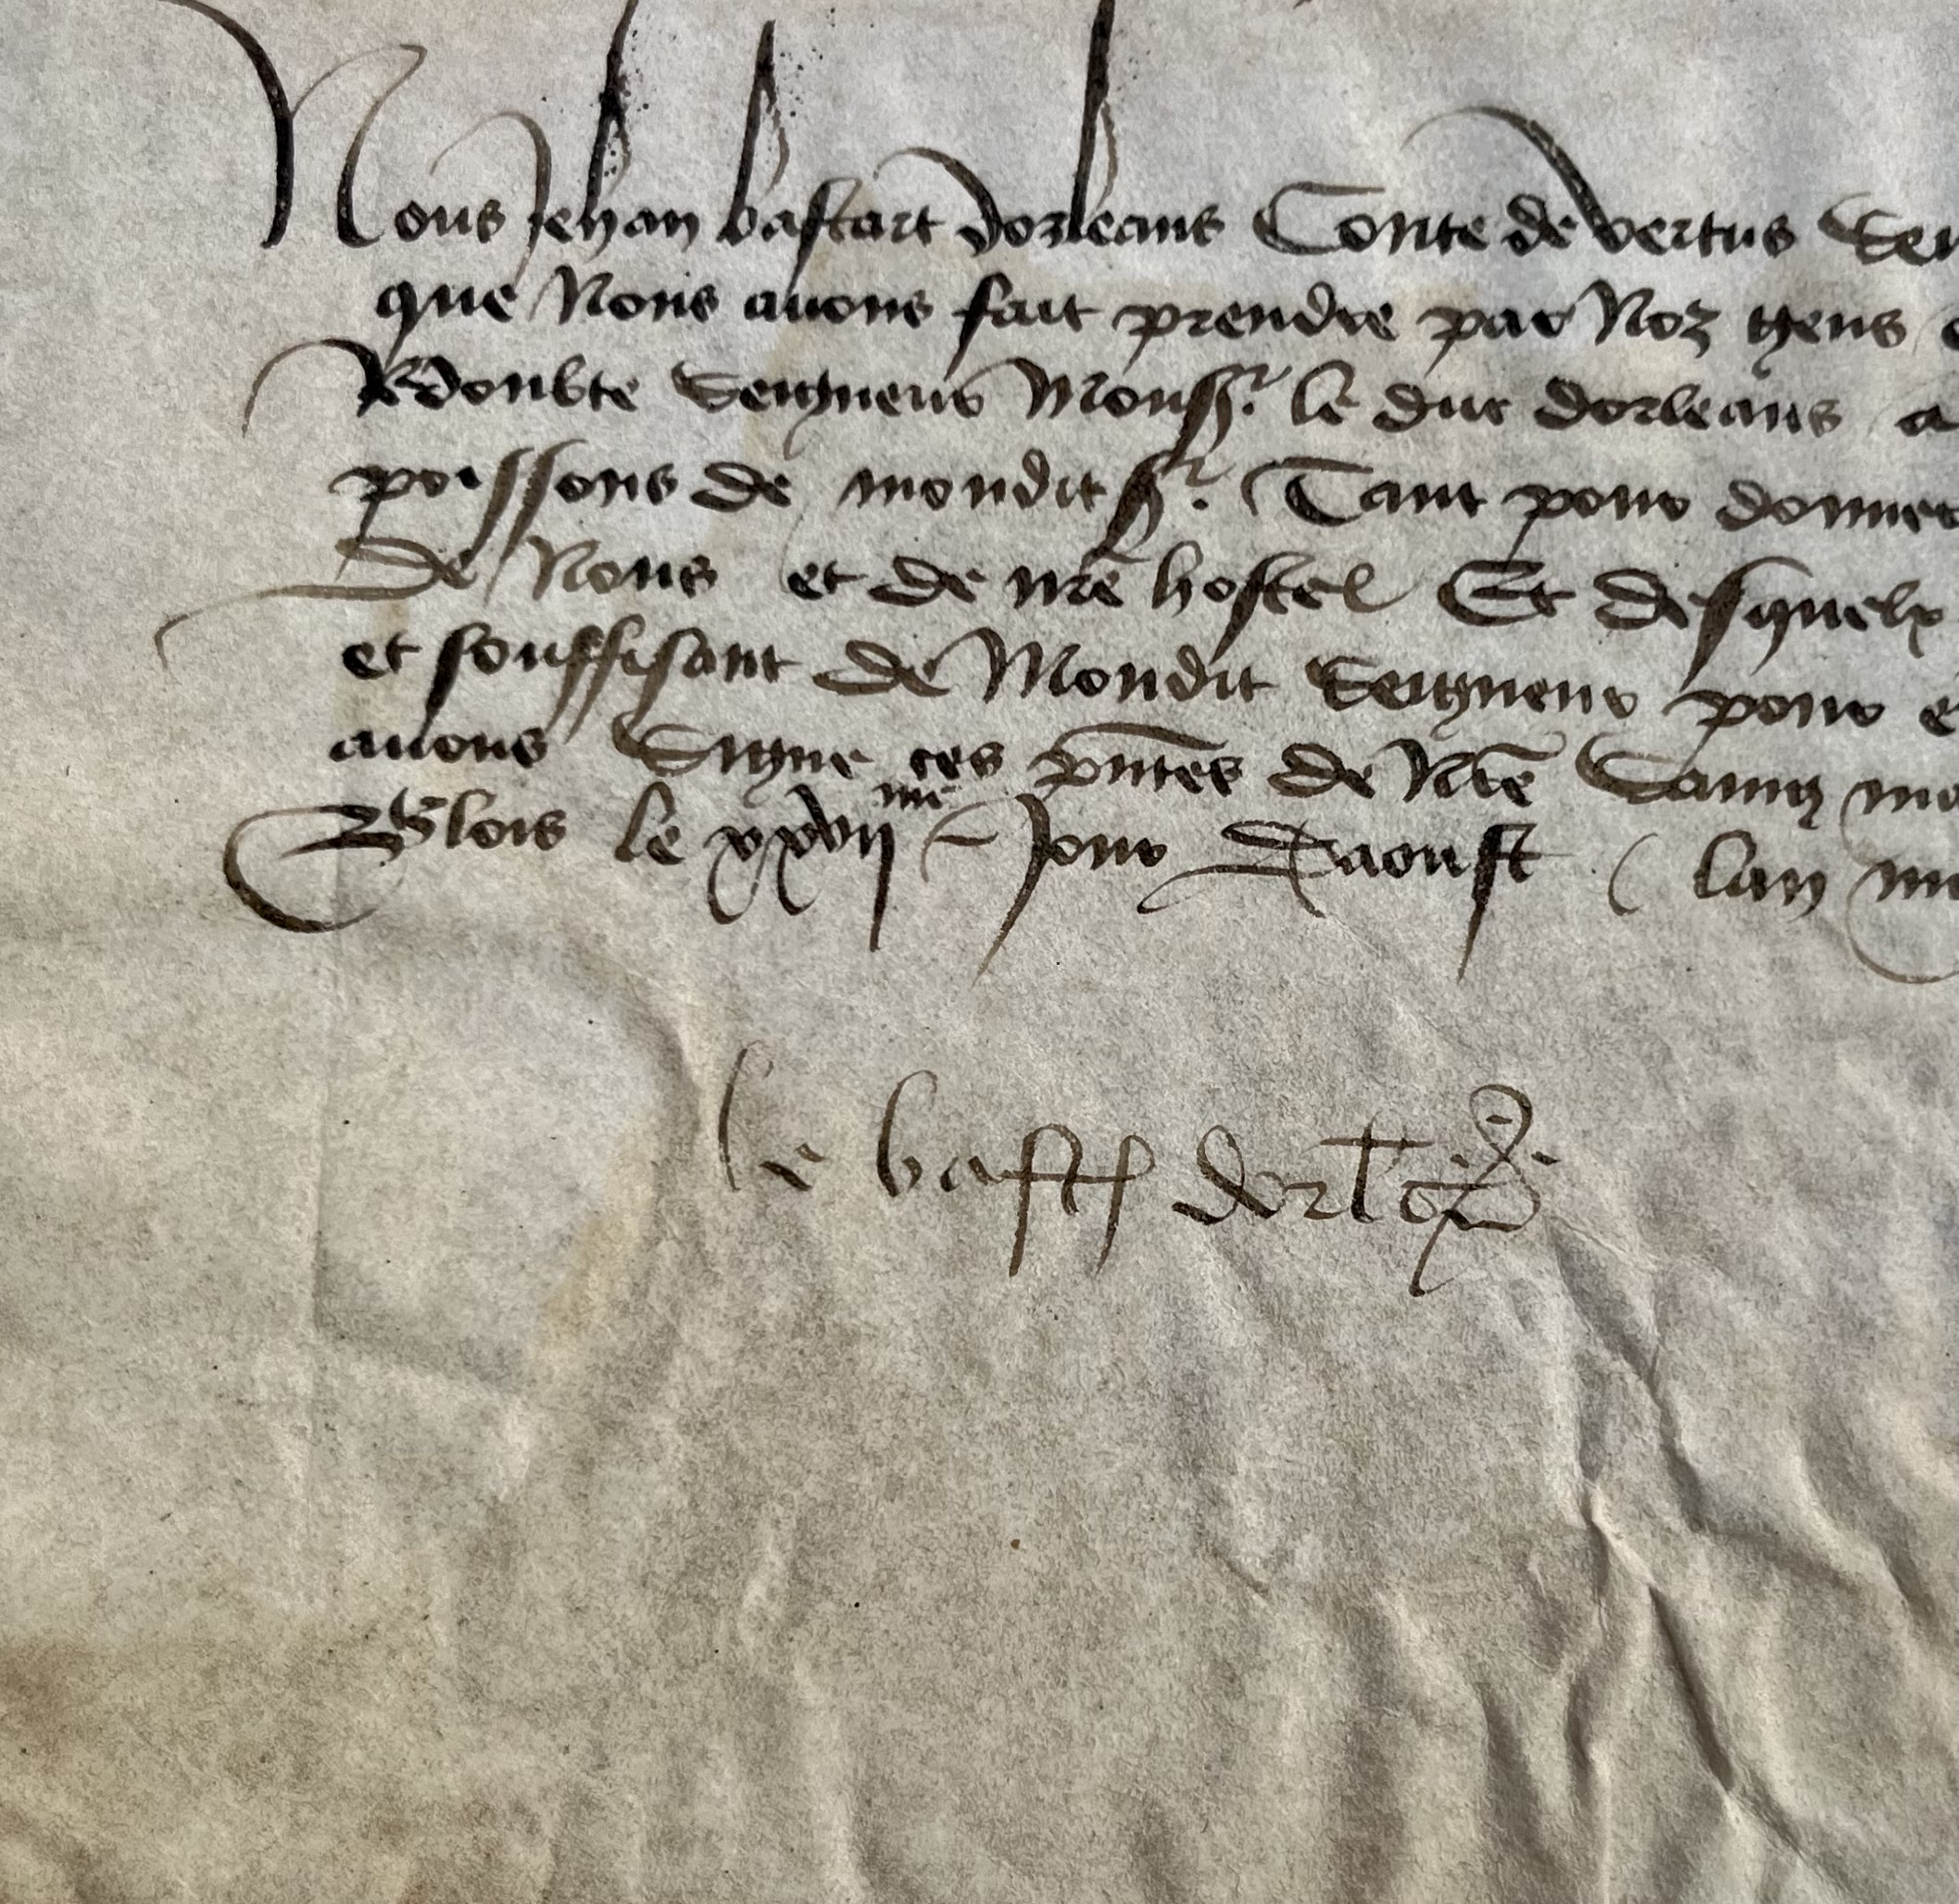 Nous Jehan bastart dorleans Conte de vertus
que Nous avons fait prendre par Noz gens
Redoubte Seigneur Monsr. le duc dorleans
poissons de mondit sr. Tant pour donner
de Nous et de nre hostel Et desquelx
et souffisant de Mondit Seigneur pour
avons Signe ces pntes de Nre main
Blois le xxvii me Jour Daoust lan
le bast dorl